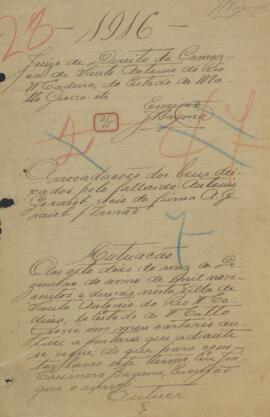 1916
Juizo de Direito da Comar
ca de Santo Antonio do Rio
Madeira, do Estado de Mat
to Grosso.
Escrivão
Bayma
Arrecadação dos bens dei
xados pelo fallecido Antonio
socio da firma A. G
& Irmão
7
Autuação
Aos oito dias do mez de De
zembro do anno de mil nove
centos e dezeseis, nesta Villa de
Santo Antonio do Rio Ma
deira, do Estado de Matto
Grosso em meu cartorio au
tuei a que adiante
se segue, do que para cons
tar lavro este termo. Eu,
Bayma, Escrivão
que o escrevi.